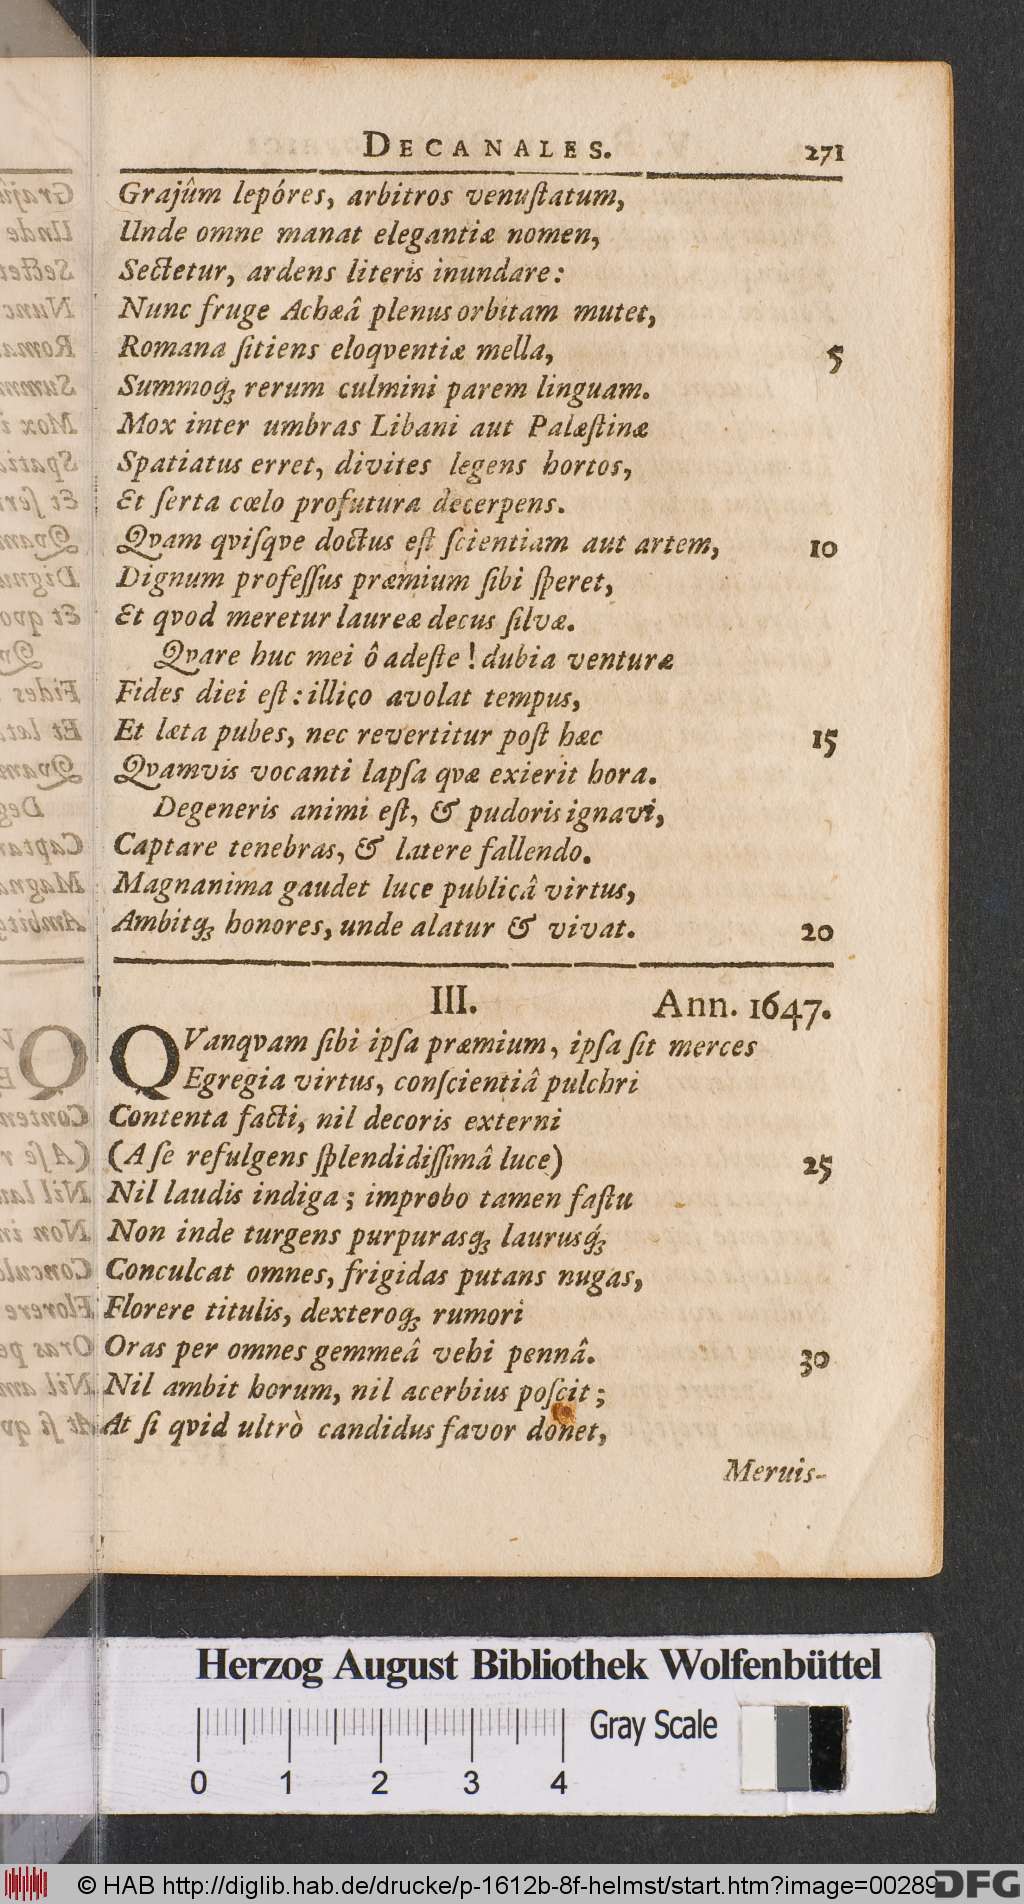 DECANALES. 271
Grajûm lepóres, arbitros venuſtatum,
Unde omne manat elegantiæ nomen,
Sectetur, ardens literis inundare:
Nunc fruge Achæâ plenus orbitam mutet,
Romana ſitiens eloqventiæ mella, 5
Summoq́; rerum culmini parem linguam.
Mox inter umbras Libani aut Palæſtinæ
Spatiatus erret, divites legens hortos,
Et ſerta cœlo profutura decerpens.
Qvam qviſqve doctus eſt ſcientiam aut artem, 10
Dignum profeſſus præmium ſibi ſperet,
Et qvod meretur laureæ decus ſilvæ.
Qvare huc mei ô adeſte! dubia venturæ
Fides diei eſt: illico avolat tempus,
Et læta pubes, nec revertitur poſt hæc 15
Qvamvis vocanti lapſa qvæ exierit hora.
Degeneris animi eſt, & pudoris ignavi,
Captare tenebras, & latere fallendo.
Magnanima gaudet luce publicâ virtus,
Ambitq́; honores, unde alatur & vivat. 20
III. Ann. 1647.
QVanqvam ſibi ipſa præmium, ipſa ſit merces
Egregia virtus, conſcientiâ pulchri
Contenta facti, nil decoris externi
(A ſe refulgens ſplendidiſſimâ luce) 25
Nil laudis indiga; improbo tamen faſtu
Non inde turgens purpurasq́; laurusq́;
Conculcat omnes, frigidas putans nugas,
Florere titulis, dexteroq́; rumori
Oras per omnes gemmeâ vehi pennâ. 30
Nil ambit horum, nil acerbius poſcit;
At ſi qvid ultrò candidus favor donet,
Meruis-
Herzog August Bibliothek Wolfenbüttel
Gray Scale
0 1 2 3 4
© HAB http://diglib.hab.de/drucke/p-1612b-8f-helmst/start.htm?image=00289
DFG